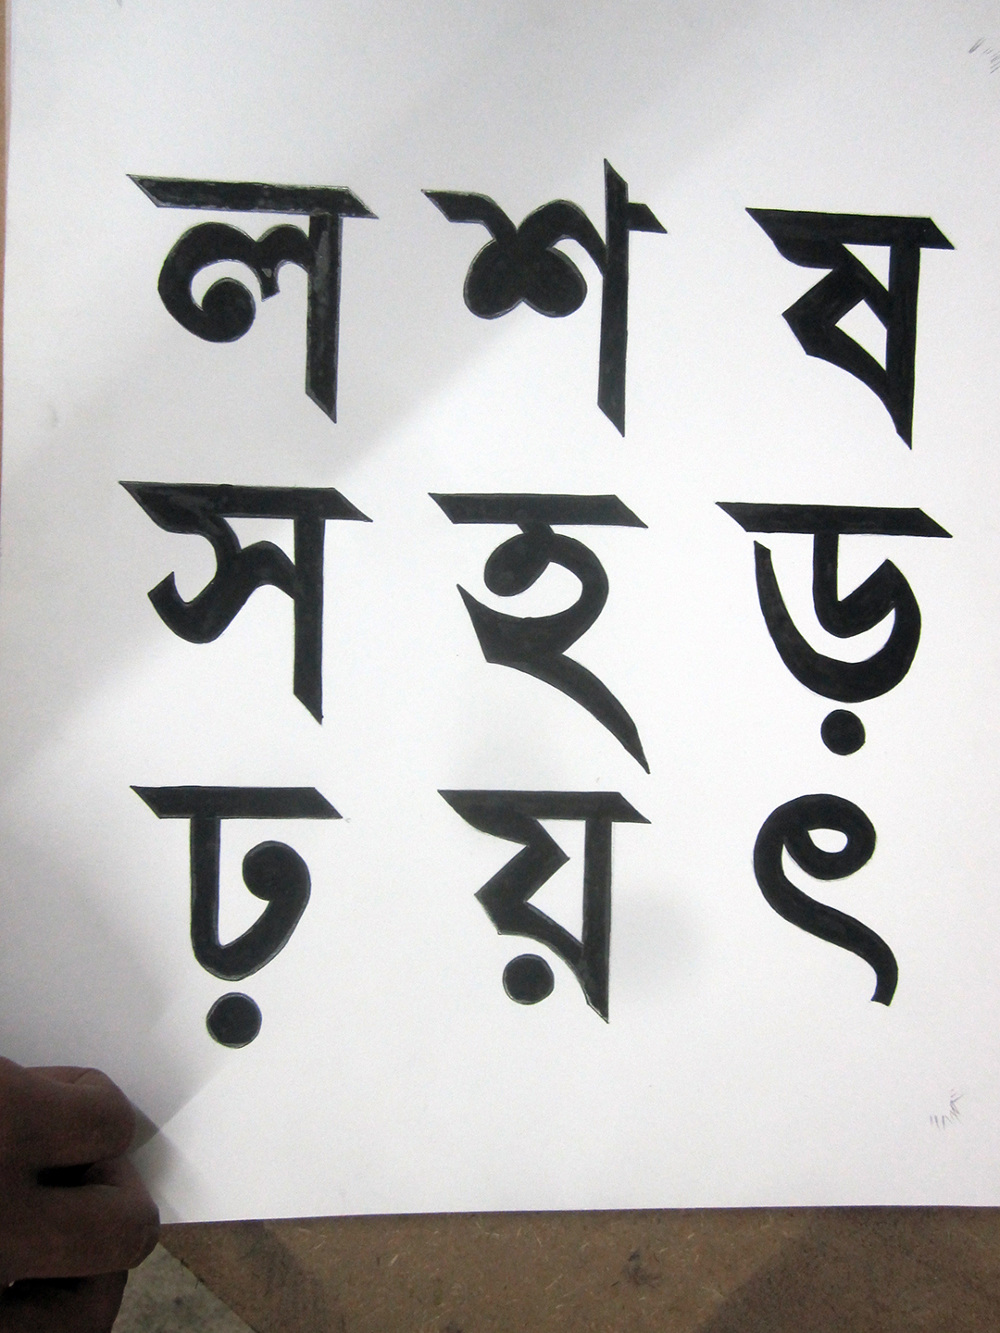 ল শ ষ
স হ ড়
ঢ় য় ৎ